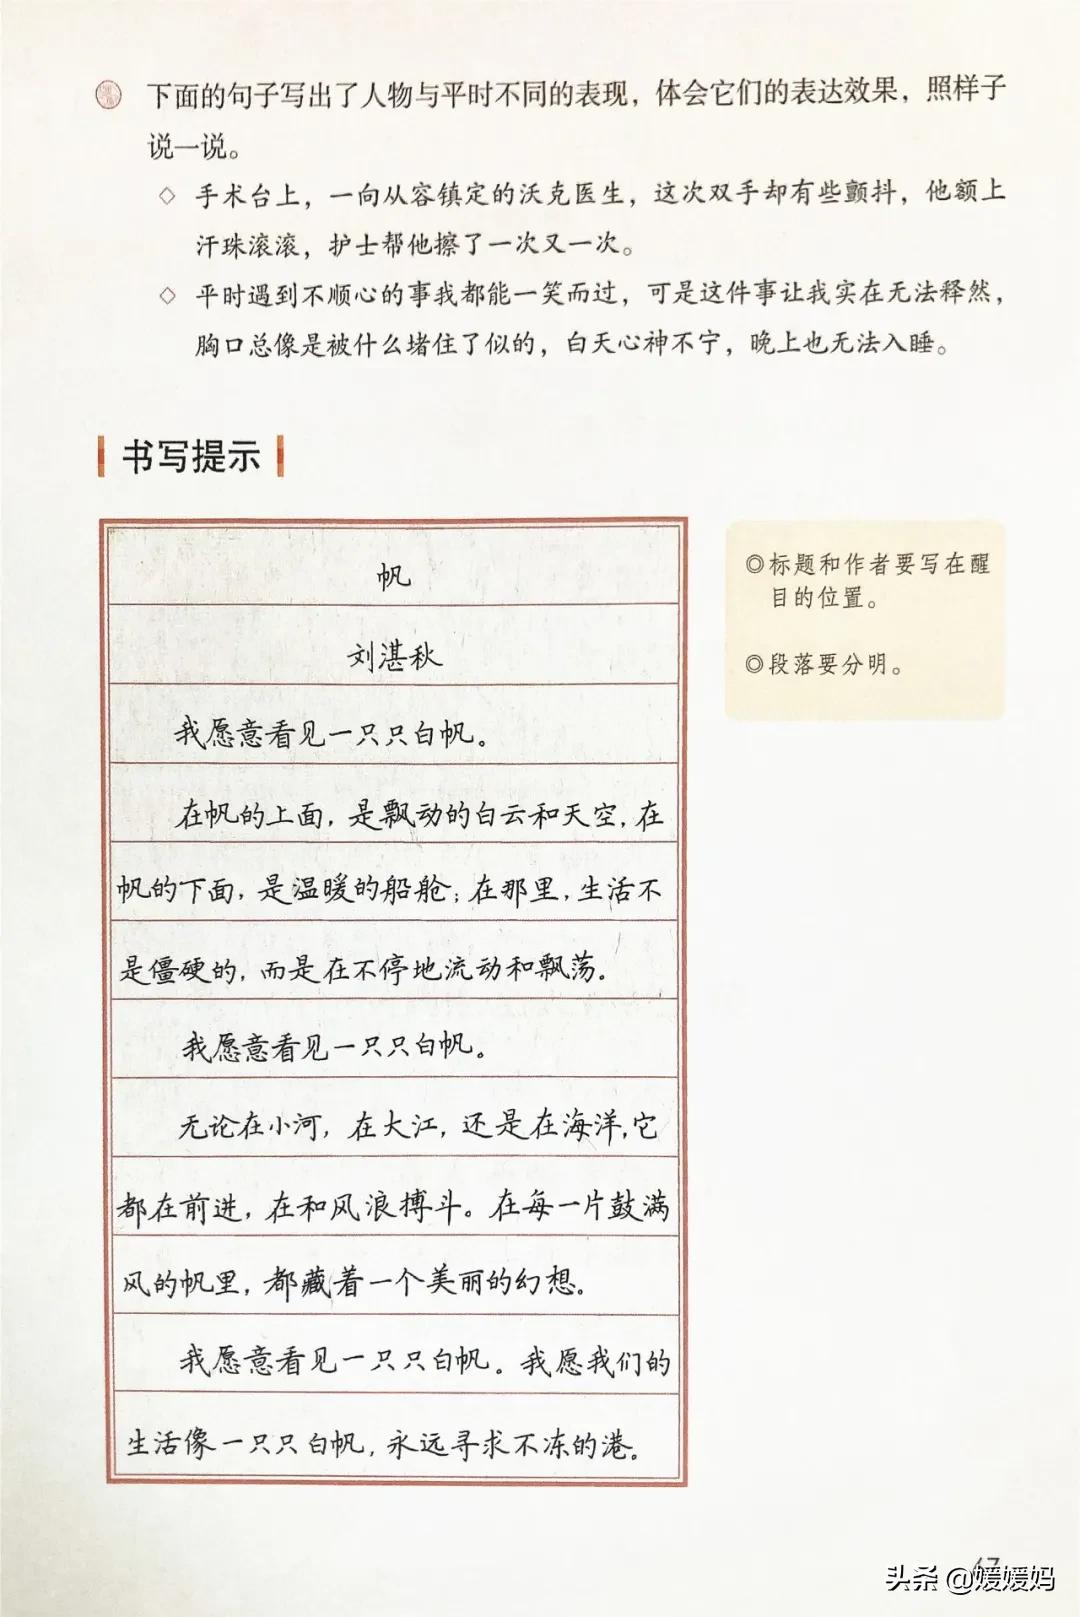 下面的句子写出了人物与平时不同的表现，体会它们的表达效果，照样子
说一说。
◇ 手术台上，一向从容镇定的沃克医生，这次双手却有些颤抖，他额上
汗珠滚滚，护士帮他擦了一次又一次。
◇ 平时遇到不顺心的事我都能一笑而过，可是这件事让我实在无法释然，
胸口总像是被什么堵住了似的，白天心神不宁，晚上也无法入睡。
书写提示
帆
刘湛秋
我愿意看见一只只白帆。
在帆的上面，是飘动的白云和天空，在
帆的下面，是温暖的船舱；在那里，生活不
是僵硬的，而是在不停地流动和飘荡。
我愿意看见一只只白帆。
无论在小河，在大江，还是在海洋，它
都在前进，在和风浪搏斗。在每一片鼓满
风的帆里，都藏着一个美丽的幻想。
我愿意看见一只只白帆。我愿我们的
生活像一只只白帆，永远寻求不冻的港。
◎标题和作者要写在醒
目的位置。
◎段落要分明。
67
头条 @媛媛妈